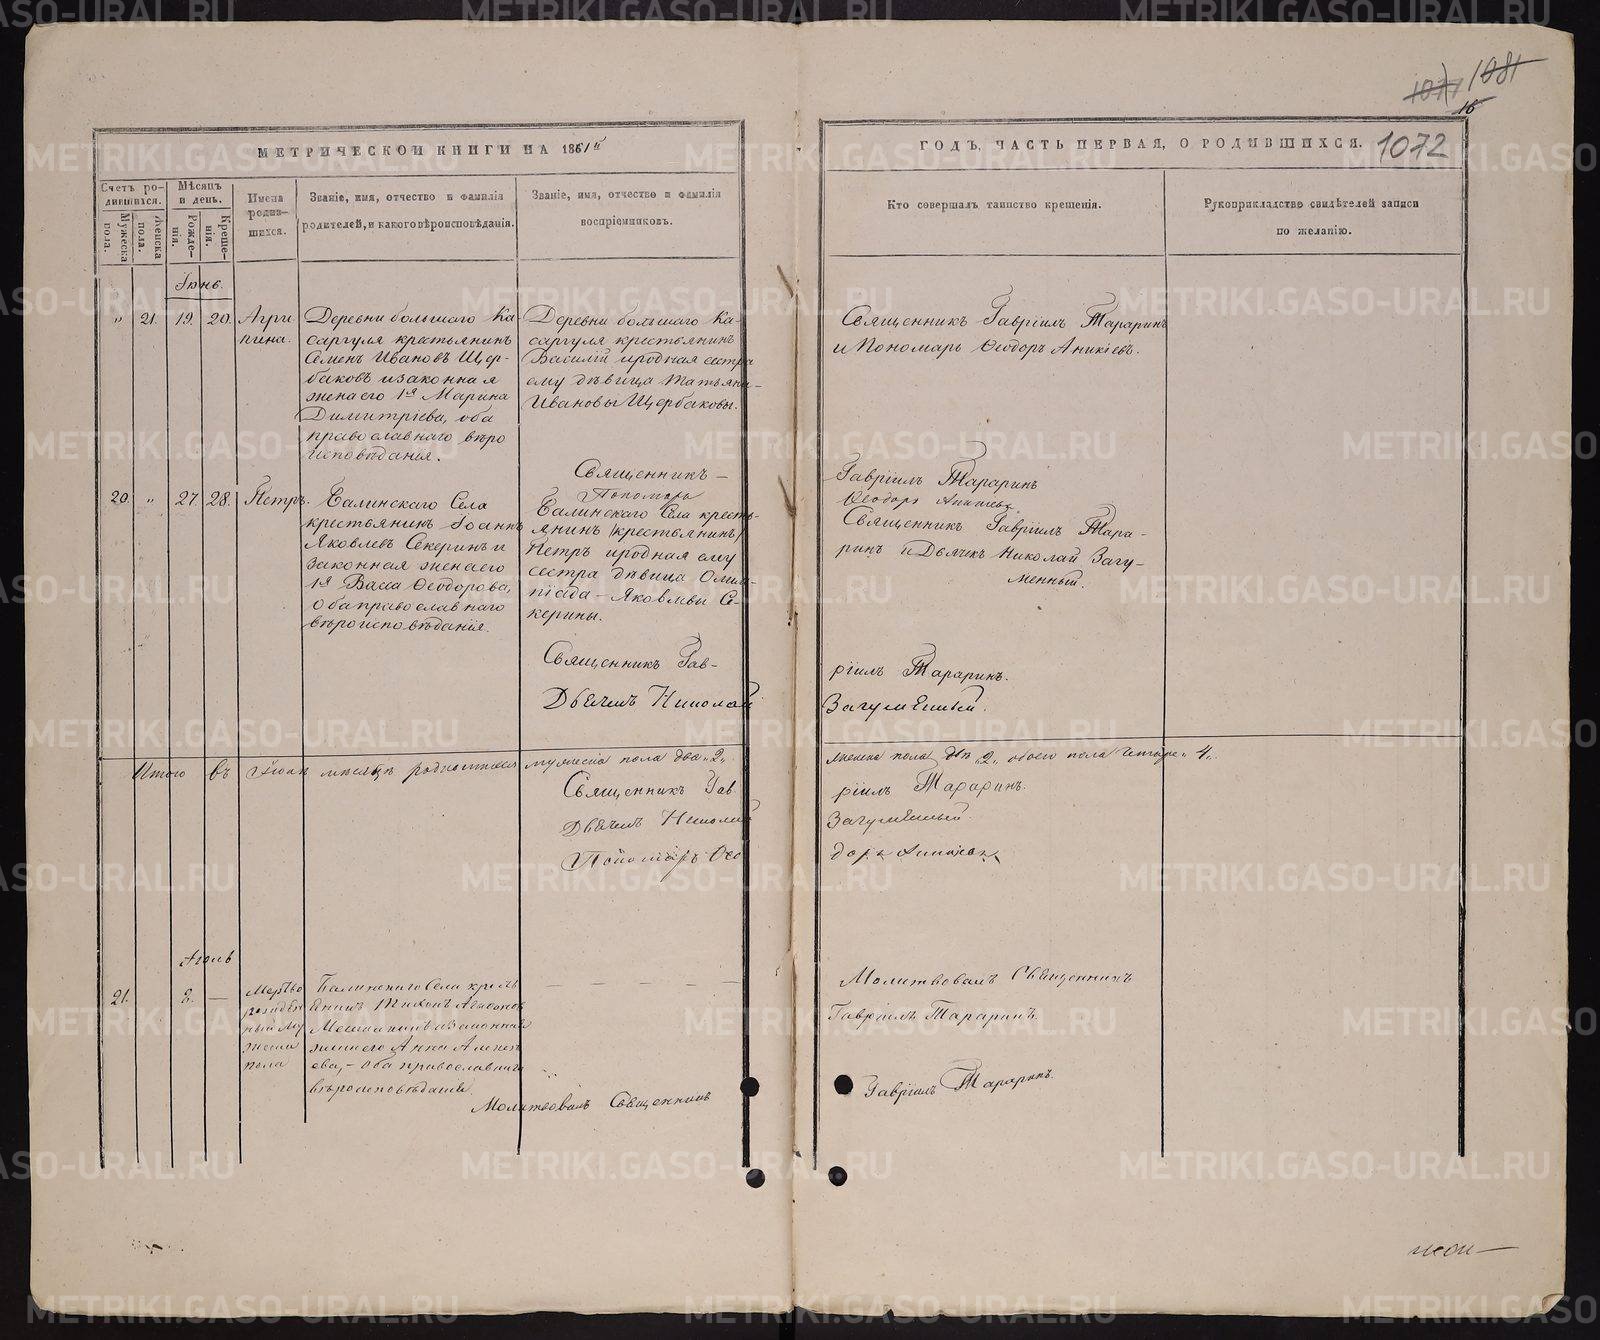 1081
1072
МЕТРИЧЕСКОЙ КНИГИ НА 1861й
ГОДЪ, ЧАСТЬ ПЕРВАЯ, О РОДИВШИХСЯ.
Счетъ родившихся.
Мужеска пола.
Женска пола.
Мѣсяцъ и день.
Рожденія.
Крещенія.
Имена родившихся.
Званіе, имя, отчество и фамилія
родителей, и какого вѣроисповѣданія.
Званіе, имя, отчество и фамилія
воспріемниковъ.
Кто совершалъ таинство крещенія.
Рукоприкладство свидѣтелей записи
по желанію.
Іюнь.
" 21. 19. 20.
Агрипина.
Деревни большаго Ка-
саргуля крестьянинъ
Семенъ Ивановъ Щер-
баковъ и законная
жена его 1я Марина
Димитріева, оба
православнаго вѣро
исповѣданія.
Деревни большаго Ка-
саргуля крестьянинъ
Василій и родная сестра
ему дѣвица Татьяна
Ивановы Щербаковы.
Священникъ Гавріилъ Тараринъ
и Пономарь Ѳеодоръ Аникіевъ.
Священникъ Гавріилъ Тараринъ
Пономарь Ѳеодоръ Аникіевъ
20. " 27. 28.
Петръ.
Галинскаго Села
крестьянинъ Іоаннъ
Яковлевъ Секеринъ и
законная жена его
1я Васса Ѳеодорова,
оба православнаго
вѣроисповѣданія.
Галинскаго Села кресть-
янинъ (крестьянинъ)
Петръ и родная ему
сестра дѣвица Олим-
піада Яковлевы Се-
керины.
Священникъ Гавріилъ Тара-
ринъ и Дьячекъ Николай Загу-
менный.
Священникъ Гавріилъ Тараринъ.
Дьячекъ Николай Загуменный.
Итого въ Іюнѣ мѣсяцѣ родившихся мужеска пола два „2„ женска пола двѣ „2„ обоего пола четыре „4„
Священникъ Гавріилъ Тараринъ.
Дьячекъ Николай Загуменный.
Пономарь Ѳеодоръ Аникіевъ
Іюль
21. 2. —
Мертво
рожден
ный му
жеска
пола
Галинскаго Села кресть
янинъ Тихонъ
и законная
жена его Анна Алексѣ
ева, - оба православнаго
вѣроисповѣданія.
Молитвовалъ Священникъ
Гавріилъ Тараринъ.
Молитвовалъ Священникъ Гавріилъ Тараринъ.
METRIKI.GASO-URAL.RU